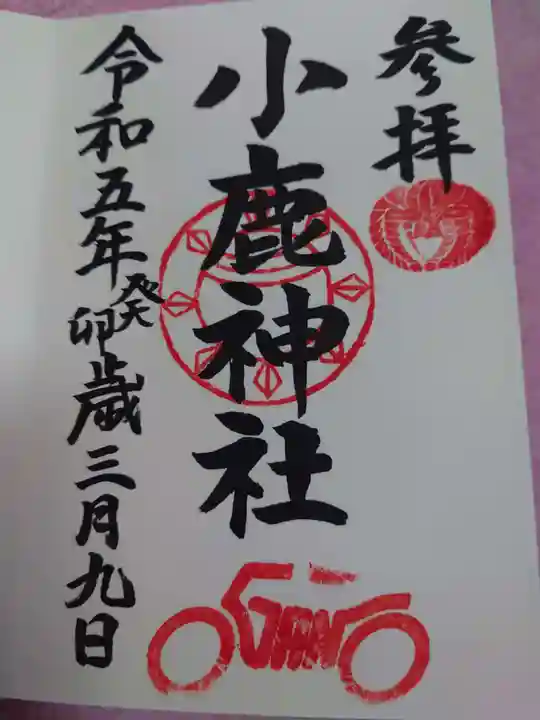 参拝
小鹿神社
令和五年癸卯歳三月九日